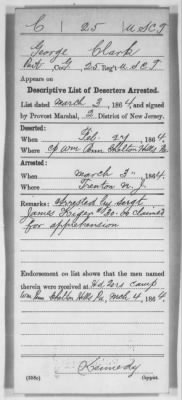 C | 25 | U S C T
George Clark
Pvt, Co. , 25 Reg't U S C T
Appears on
Descriptive List of Deserters Arrested.
List dated March 3, 1864 and signed
by Provost Marshal, 2 District of New Jersey.
Deserted:
When Feb. 27, 1864.
Where Cp Wm Penn Chelton Hills Pa
Arrested:
When March 3", 1864.
Where Trenton N. J.
Remarks: Arrested by Sergt.
James
for apprehension
Endorsement on list shows that the men named
therein were received at Hd. Qrs Camp
Wm Penn Chelton Hills Pa, Mch 4, 1864
Kennedy
(338c) Copyist.